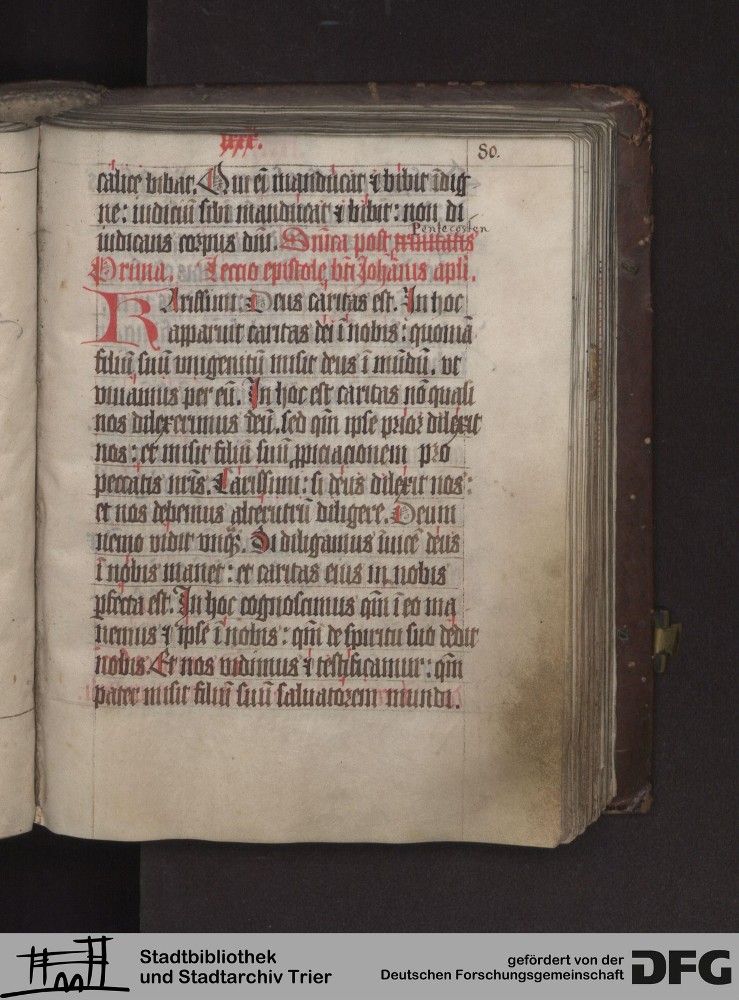 lxxx.
80.
calice bibat. Qui eī manducat ⁊ bibit īdig
ne: iudiciū sibi manducat ⁊ bibit: non di
Pentecosten
iudicans corpus dn̄i. Dn̄ica post trinitatis
Prima. Leccio epistolę bt̄i Johānis apl̄i.
KArissimi: Deus caritas est. In hoc
apparuit caritas dei ī nobis: quoniā
filiū suū vnigenitū misit deus ī mūdū. vt
viuamus per eū. In hoc est caritas nō quasi
nos dilexerimus deū. sed qm̄ ipse prior dilexit
nos: et misit filiū suū ꝓpiciacionem pro
peccatis nr̄is. Carissimi: si deus dilexit nos:
et nos debemus alterutrū diligere. Deum
nemo vidit vnqȝ. Si diligamus īuicē deus
ī nobis manet: et caritas eius in nobis
ꝑfecta est. In hoc cognoscimus qm̄ ī eo ma
nemus ⁊ ipse ī nobis: qm̄ de spiritu suo dedit
nobis. Et nos vidimus ⁊ testificamur: qm̄
pater misit filiū suū saluatorem mundi.
Stadtbibliothek
und Stadtarchiv Trier
gefördert von der
Deutschen Forschungsgemeinschaft
DFG